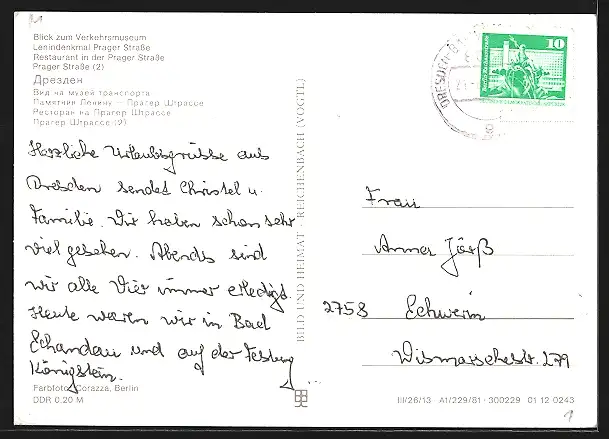 Blick zum Verkehrsmuseum
Lenindenkmal Prager Straße
Restaurant in der Prager Straße
Prager Straße (2)
Дрезден
Вид на музей транспорта
Памятник Ленину — Прагер Штрассе
Ресторан на Прагер Штрассе
Прагер Штрассе (2)
Herzliche Urlaubsgrüsse aus
Dresden sendet Christel u.
Familie. Wir haben schon sehr
viel gesehen. Abends sind
wir alle Vier immer erledigt.
Heute waren wir in Bad
Schandau und auf der Festung
Königstein.
Farbfoto: Corazza, Berlin
DDR 0,20 M
BILD UND HEIMAT · REICHENBACH (VOGTL)
DRESDEN
10
Frau
Anna Jörß
2758 Schwerin
Wismarschestr. 279
III/26/13 · A1/229/81 · 300229 01 12 0243